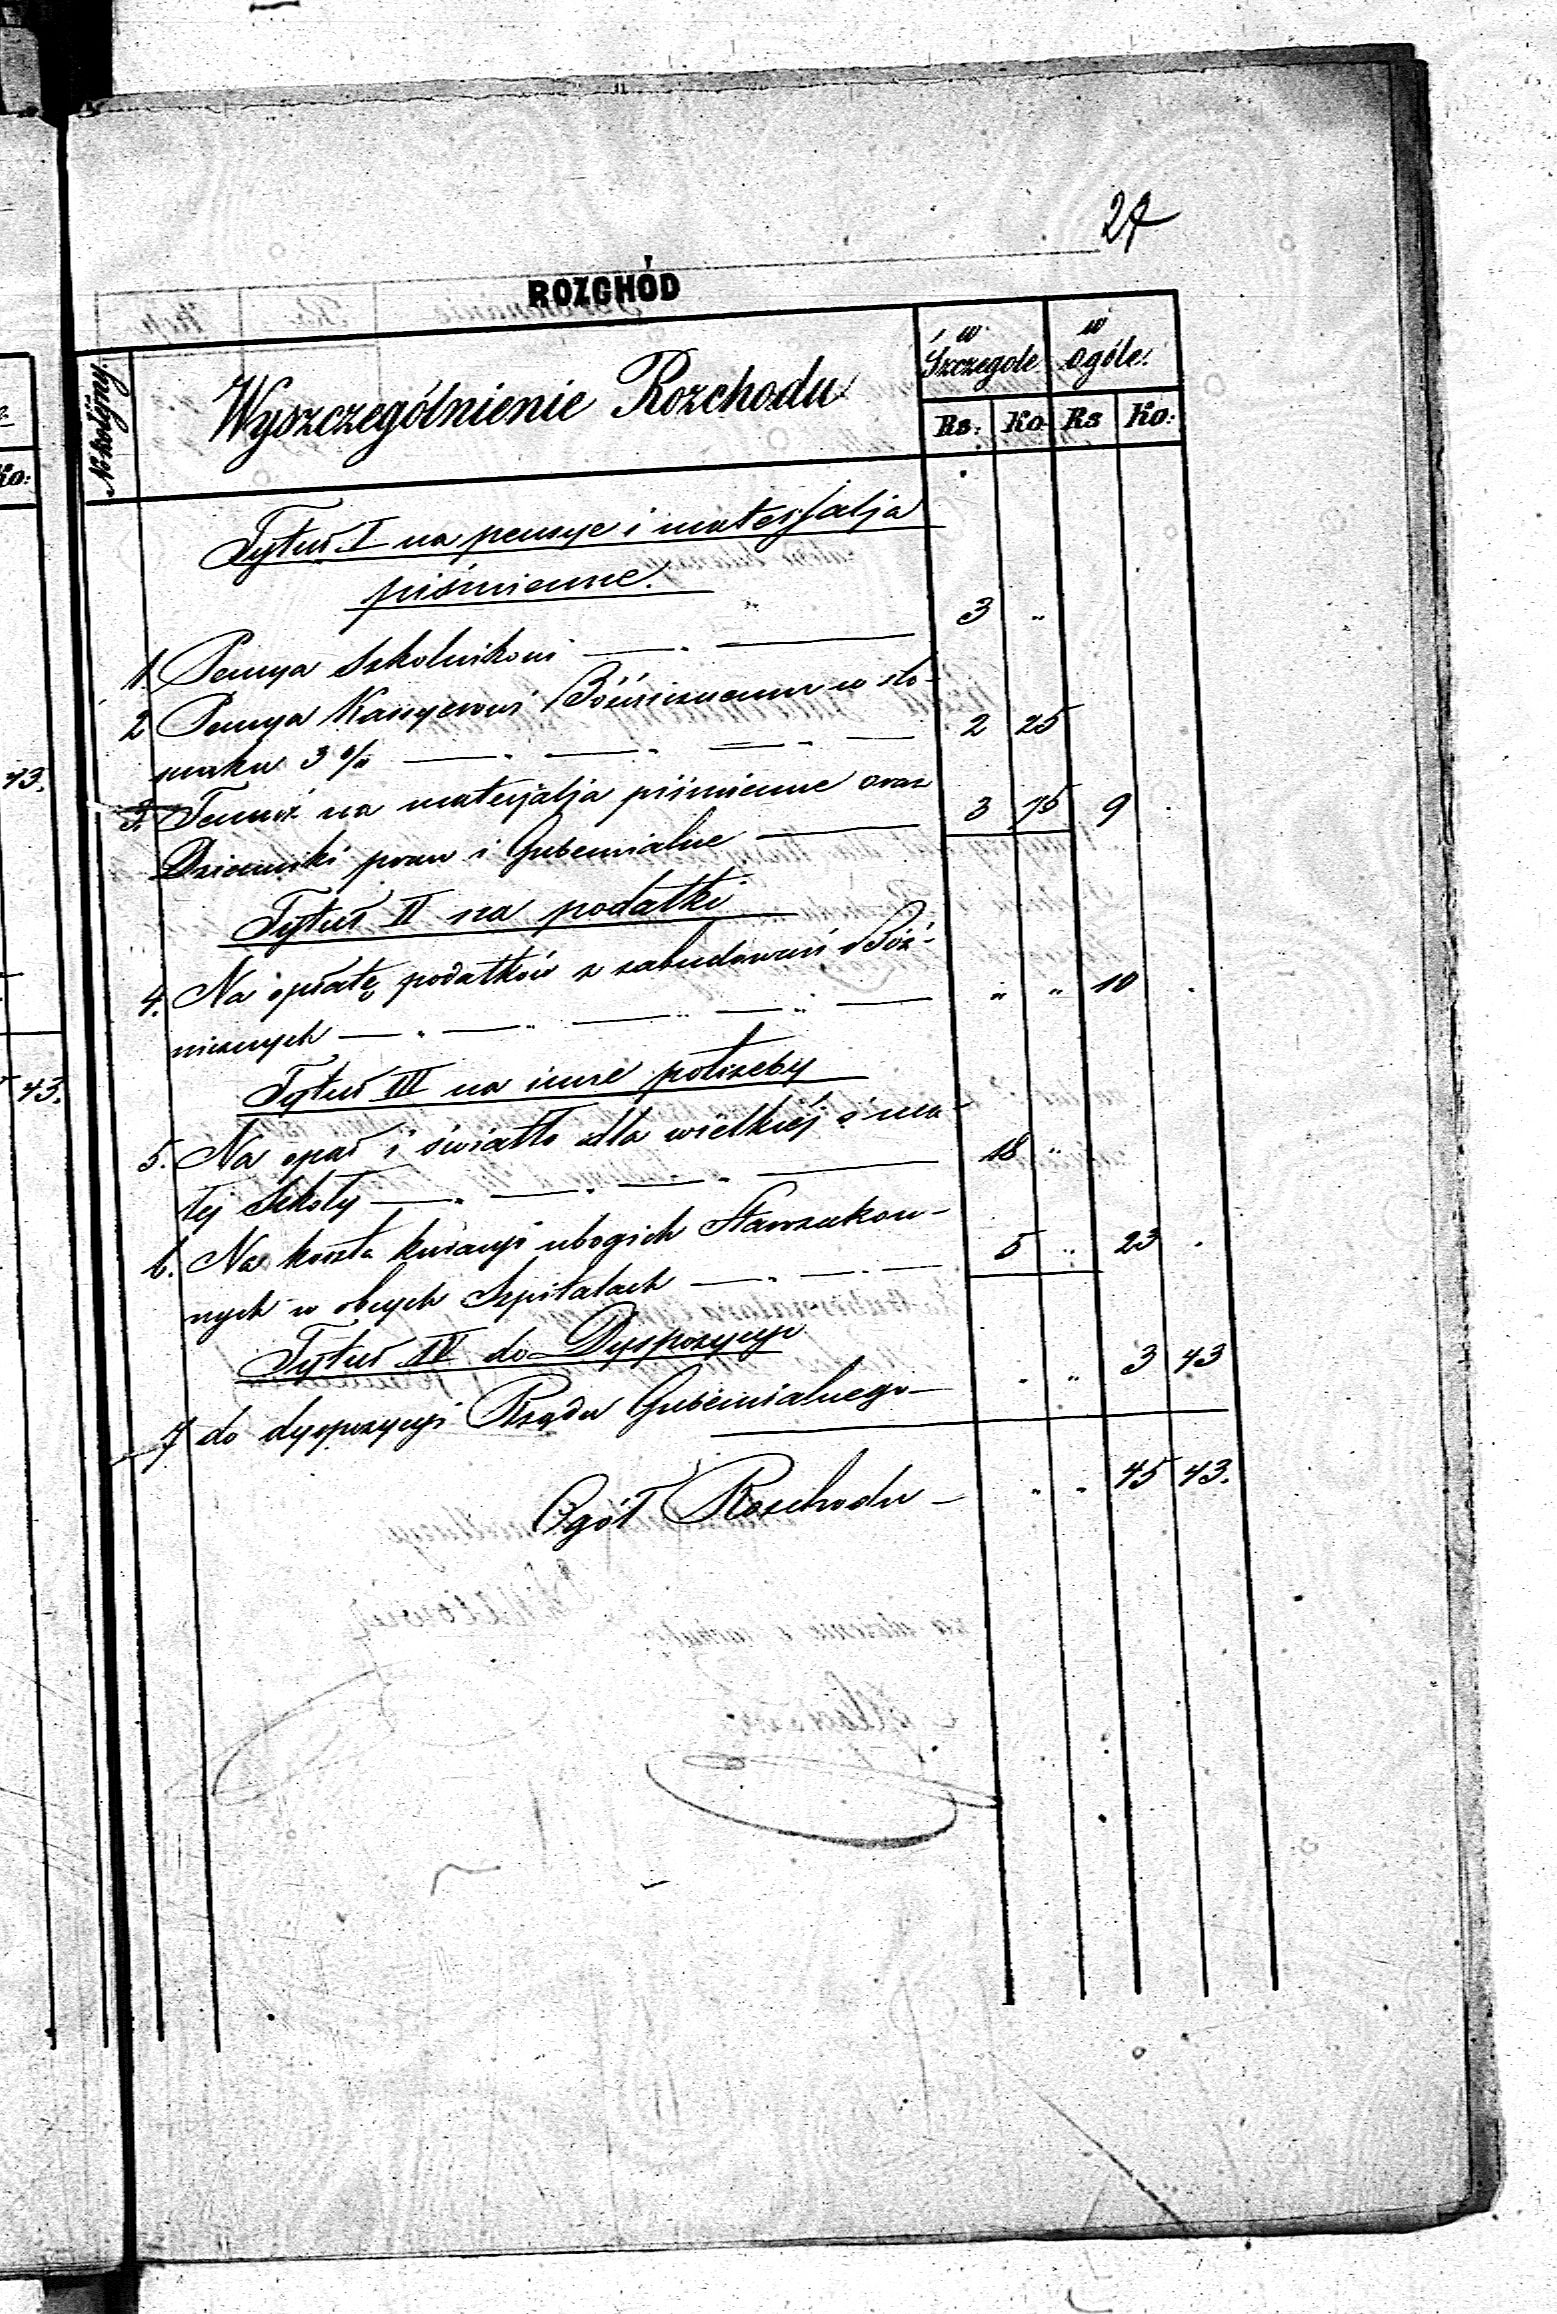 27
ROZCHÓD
No kolejny.
Wyszczególnienie Rozchodu
w Szczegole
w ogóle:
Rs: Ko Rs Ko:
Tytuł I na pensye i materjalja
piśmienne.
1. Pensya Szkolnikowi — " — 3 "
2 Pensya Kassyerowi Bóźnicznemu w sto-
sunku 3 % — " — " — " — 2 25
3. Temuż na materjalja piśmienne oraz
Dzienniki praw i Gubernialne — 3 75 9 .
Tytuł II na podatki
4. Na opłatę podatków z zabudowań Bóź-
nicznych — " — " — " — " — " " 10 .
Tytuł III na inne potrzeby
5. Na opał i światło dla wielkiéj i ma-
łej Szkoły — " — " — " — 18 "
6. Na koszta kuracyi ubogich Starozakon-
nych w obcych Szpitalach — " — " — 5 " 23 .
Tytuł IV do Dyspozycyi
7 do dyspozycyi Rządu Gubernialnego — " " 3 43
Ogół Rozchodu — " " 45 43.
Ko:
43.
43.